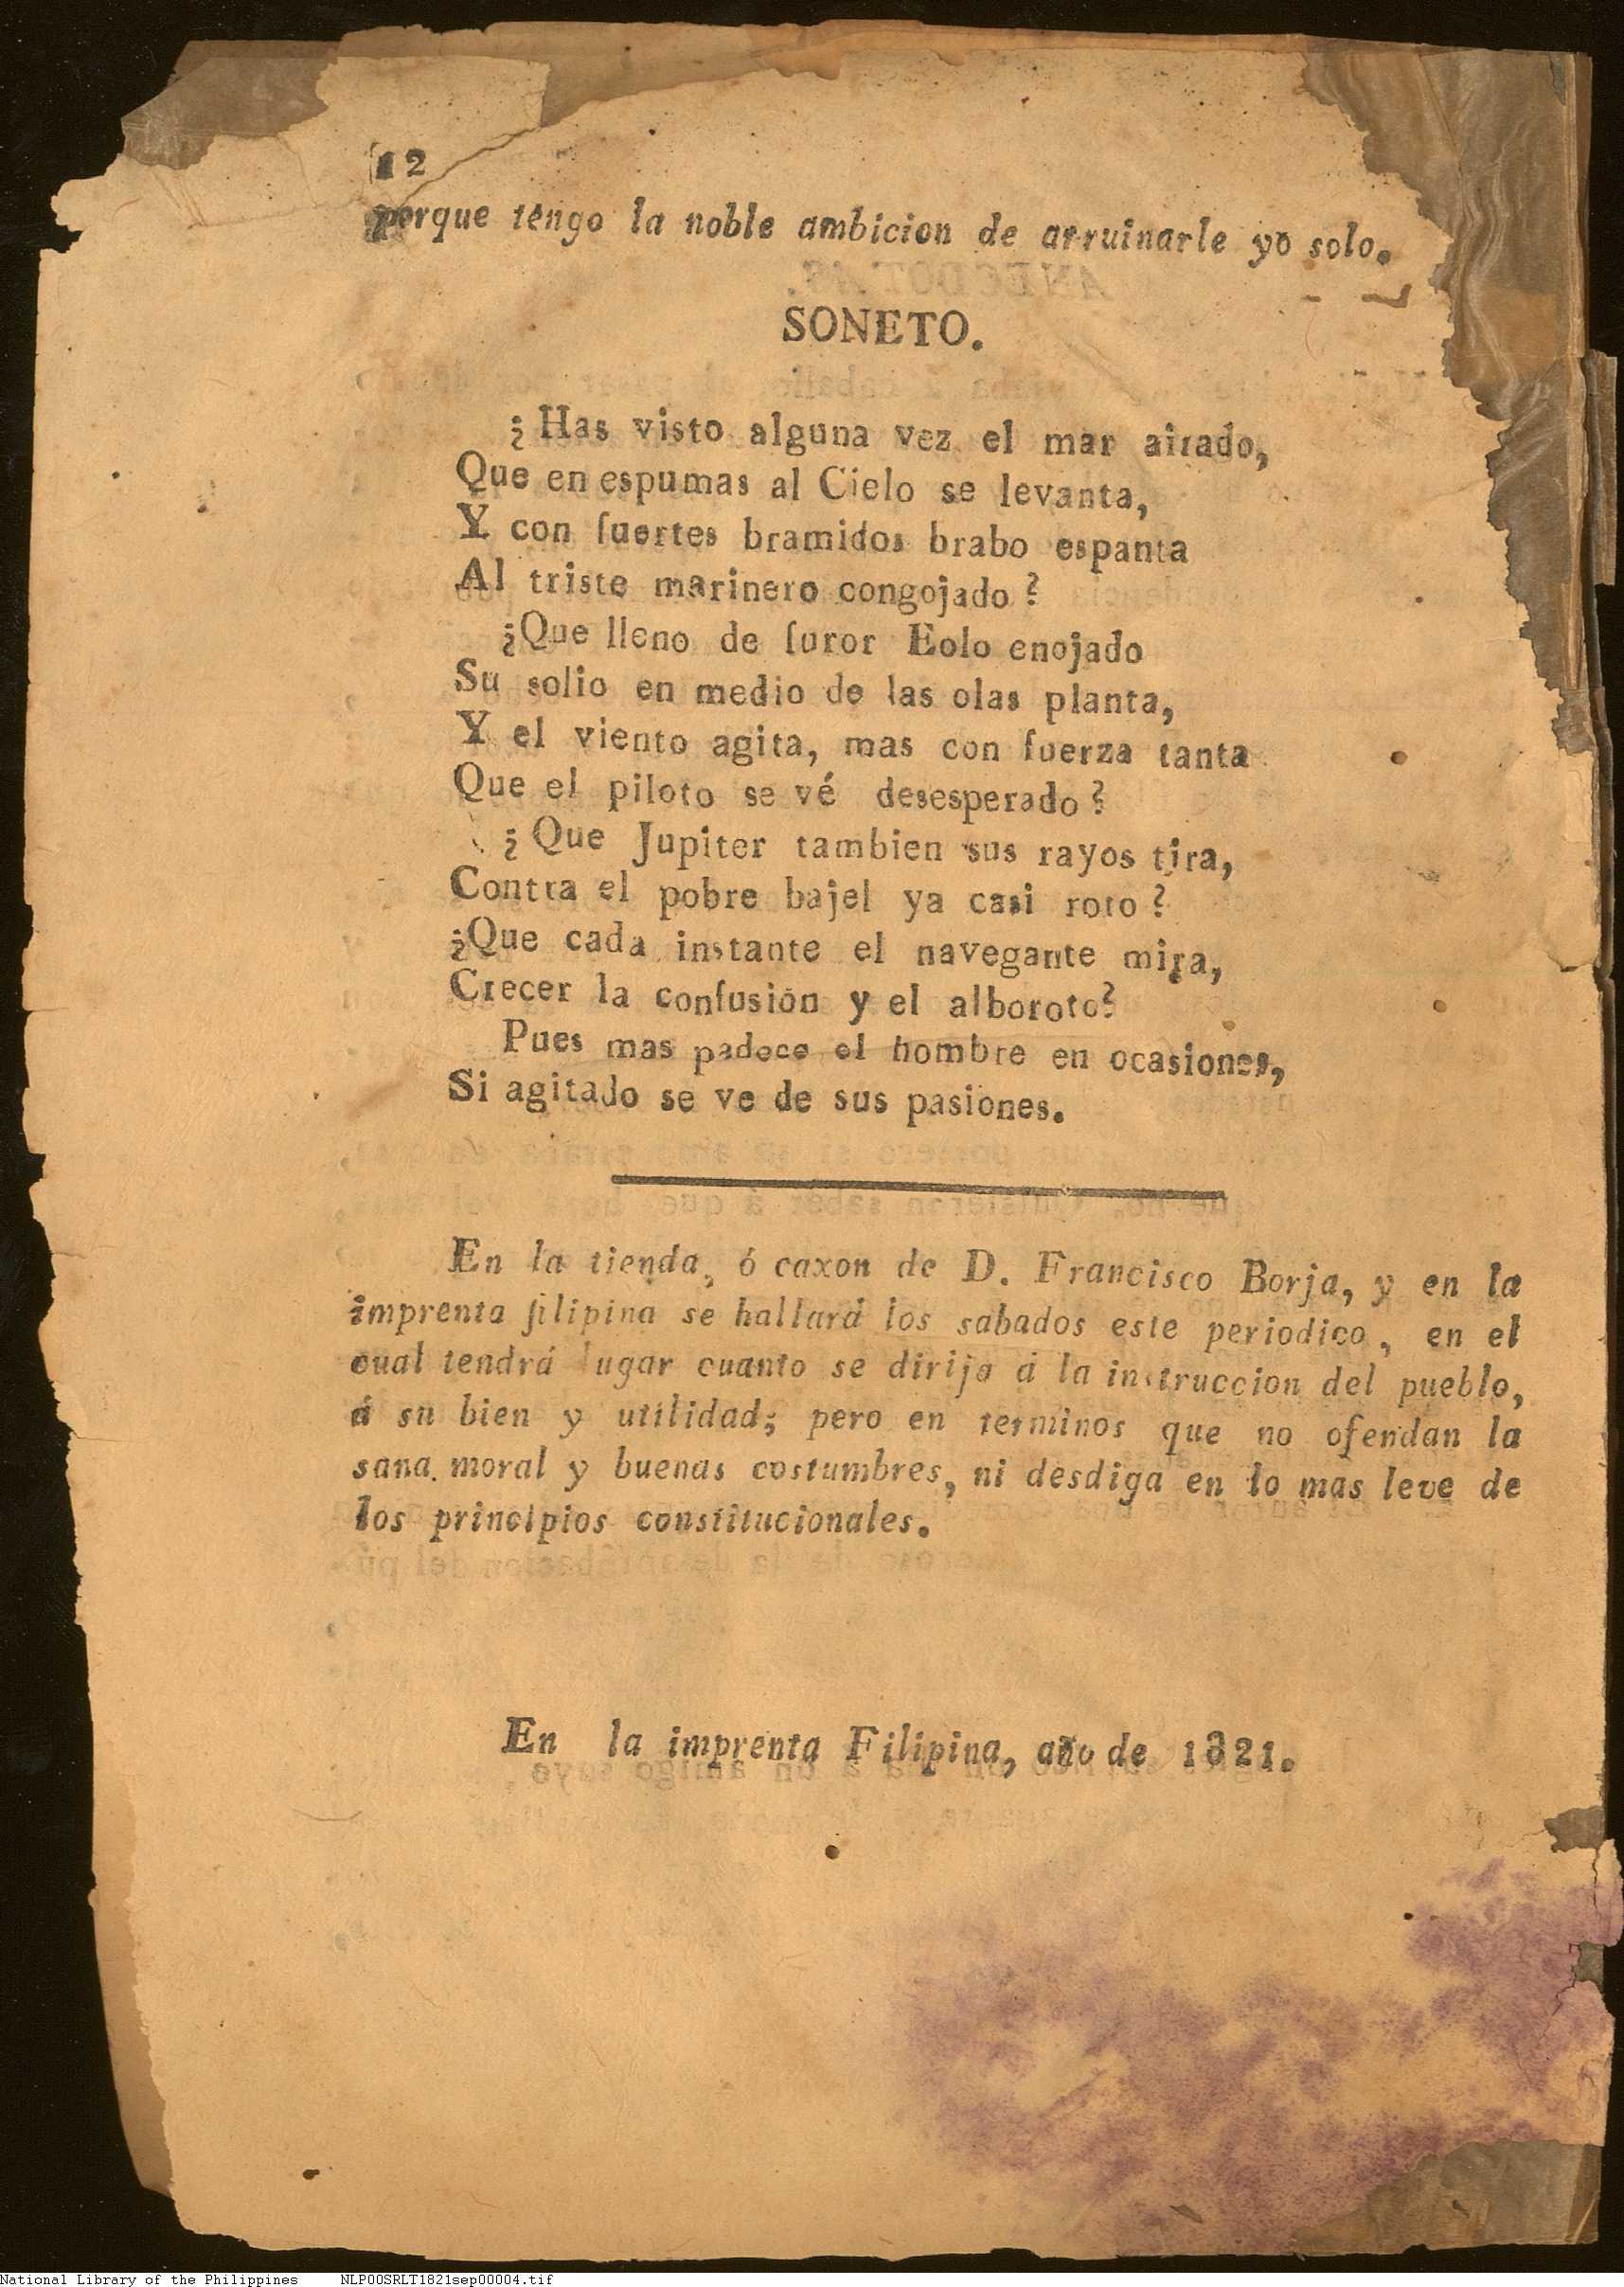 12
porque tengo la noble ambicion de arruinarle yo solo.
SONETO.
¿Has visto alguna vez el mar airado,
Que en espumas al Cielo se levanta,
Y con fuertes bramidos brabo espanta
Al triste marinero congojado?
¿Que lleno de furor Eolo enojado
Su solio en medio de las olas planta,
Y el viento agita, mas con fuerza tanta
Que el piloto se vé desesperado?
¿Que Jupiter tambien sus rayos tira,
Contra el pobre bajel ya casi roto?
¿Que cada instante el navegante mira,
Crecer la confusión y el alboroto?
Pues mas padece el hombre en ocasiones,
Si agitado se ve de sus pasiones.
En la tienda, ó caxon de D. Francisco Borja, y en la
imprenta filipina se hallará los sabados este periodico, en el
cual tendrá lugar cuanto se dirija á la instruccion del pueblo,
á su bien y utilidad; pero en terminos que no ofendan la
sana moral y buenas costumbres, ni desdiga en lo mas leve de
los principios constitucionales.
En la imprenta Filipina, año de 1821.
National Library of the Philippines NLP00SRLT1821sep00004.tif